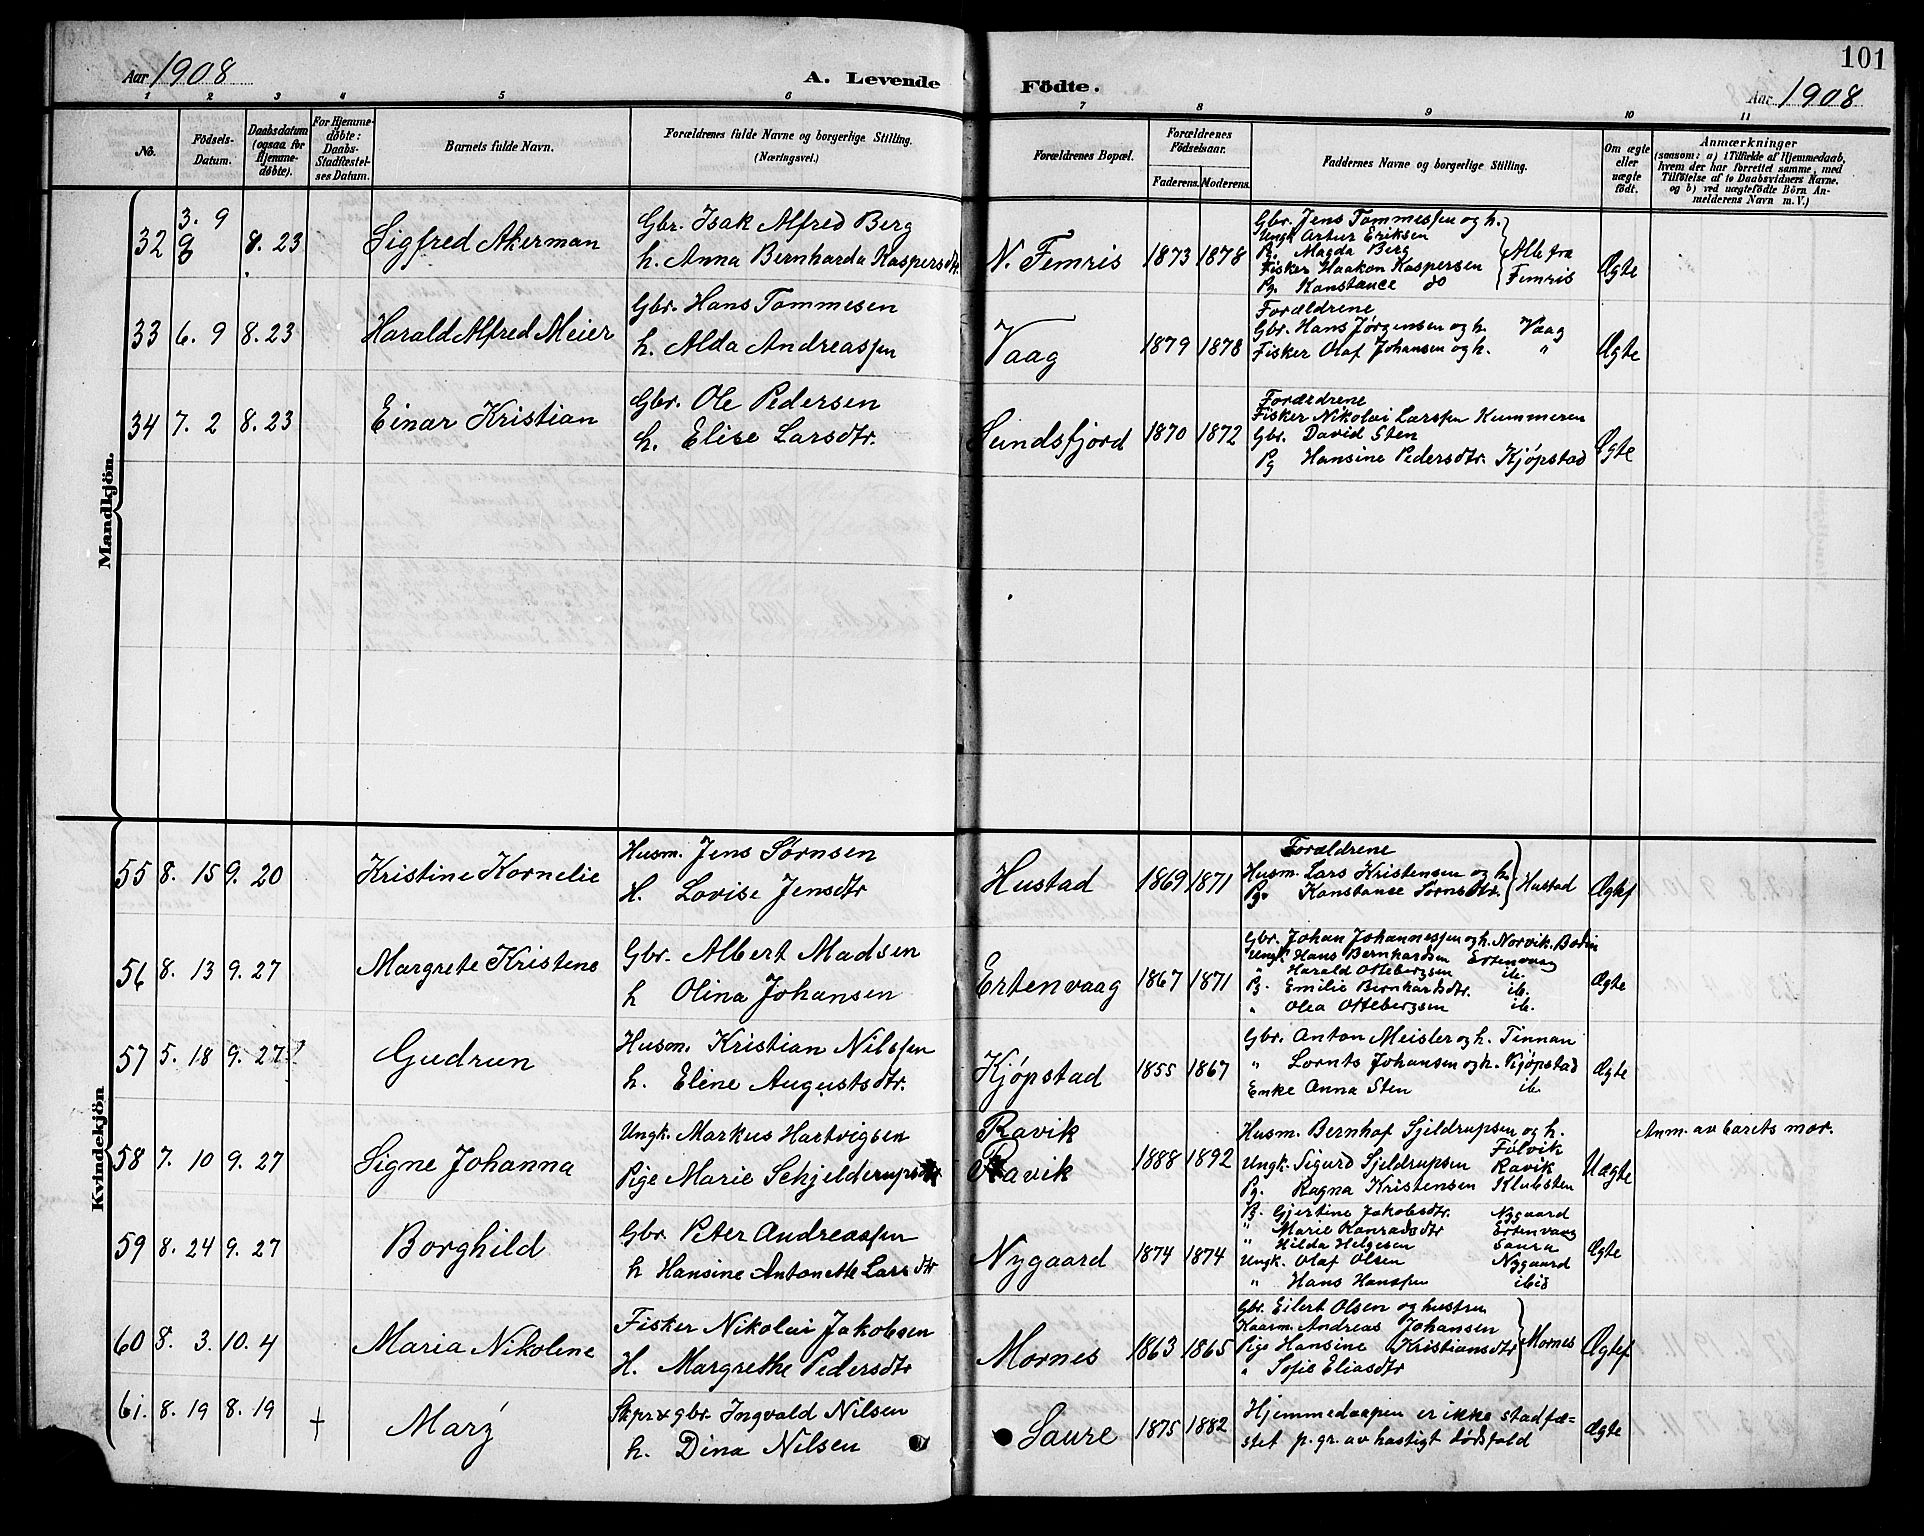 101
Aar 1908
A. Levende
Födte.
Aar 1908
1 2 3 4 5 6 7 8 9 10 11
No.
Födsels-Datum.
Daabsdatum (ogsaa for Hjemmedøbte).
For Hjemmedøbte: Daabs-Stadfæstelses Datum.
Barnets fulde Navn.
Forældrenes fulde Navne og borgerlige Stilling.
(Næringsvei.)
Forældrenes Bopæl.
Forældrenes Fødselsaar.
Faderens. Moderens.
Faddernes Navne og borgerlige Stilling.
Om ægte eller uægte født.
Anmærkninger
(saasom: a) i Tilfælde af Hjemmedaab,
hvem der har forrettet samme, med
Tilføielse af to Daabsvidners Navne,
og b) ved uægtefødte Börn An-
melderens Navn m. V.)
Mandkjön.
32 3. 9 8. 23 Sigfred Akerman
Gbr. Isak Alfred Berg
h. Anna Bernharda Kaspersdtr.
N. Femris 1873 1878
Gbr. Jens Tommessen og h.
Ungk. Artur Eriksen
P. Magda Berg
Fisker Haakon Kaspersen
Pg. Konstance do
Alle fra
Femris
Ægte
33 6. 9 8. 23 Harald Alfred Meier
Gbr. Hans Tommesen
h. Alda Andreassen
Vaag 1879 1878
Forældrene
Gbr. Hans Jørgensen og h. Vaag
Fisker Olaf Johansen og h. "
Ægte
34 7. 2 8. 23 Einar Kristian
Gbr. Ole Pedersen
h. Elise Larsdtr.
Sundsfjord 1870 1872
Forældrene
Fisker Nikolai Larssen Kummeren
Gbr. David Sten
Pg Hansine Pedersdtr. Kjøpstad
Ægte
Kvindekjön
55 8. 15 9. 20 Kristine Kornelie
Husm. Jens Sørnsen
H. Lovise Jensdtr
Hustad 1869 1871
Forældrene
Husm. Lars Kristensen og h.
Pg. Konstanse Sørnsdtr.
Hustad
Ægtef
56 8. 13 9. 27 Margrete Kristene
Gbr. Albert Madsen
h Olina Johansen
Ertenvaag 1867 1871
Gbr. Johan Johannessen og h. Norvik. Bodin
Ungk. Hans Bernhardsen Ertenvaag
" Harald Ottebergsen ib.
Pg. Emilie Bernhardsdtr. ib.
" Olea Ottebergsen ib.
Ægte
57 5. 18 9. 27 ? Gudrun
Husm. Kristian Nilssen
h. Eline Augustsdtr.
Kjøpstad 1855 1867
Gbr. Anton Meisler og h. Tinnan
" Lornts Johansen og h. Kjøpstad
Enke Anna Sten ib
Ægte
58 7. 10 9. 27 Signe Johanna
Ungk. Markus Hartvigsen
Pige Marie Schjelderupsdtr
Ravik
Ravik
1888 1892
Husm. Bernhof Sjeldrupsen og h.
Følvik
Ungk. Sigurd Sjeldrupsen Ravik
Pg. Ragna Kristensen Klubsten
Uægte
Anm. av barets mor.
59 8. 24 9. 27 Borghild
Gbr. Peter Andreassen
h Hansine Antonette Larsdtr
Nygaard 1874 1874
P. Gjertine Jakobsdtr Nygaard
" Marie Konradsdtr Ertenvaag
" Hilda Helgesen Saura
Ungk. Olaf Olsen Nygaard
" Hans Hanssen ibid
Ægte
60 8. 3 10. 4 Maria Nikoline
Fisker Nikolai Jakobsen
H. Margrethe Pedersdtr
Mornes 1863 1865
Gbr. Eilert Olsen og hustru
Kaarm. Andreas Johansen
Pige Hansine Kristiansdtr
" Sofie Eliasdtr
Mornes
Ægtef
61. 8. 19 8. 19 † Mary
Skpr & gbr. Ingvald Nilsen
h. Dina Nilsen
Saure 1875 1882
Hjemmedaapen er ikke stadfæ=
stet p. gr. av hastigt dødsfald
Ægte